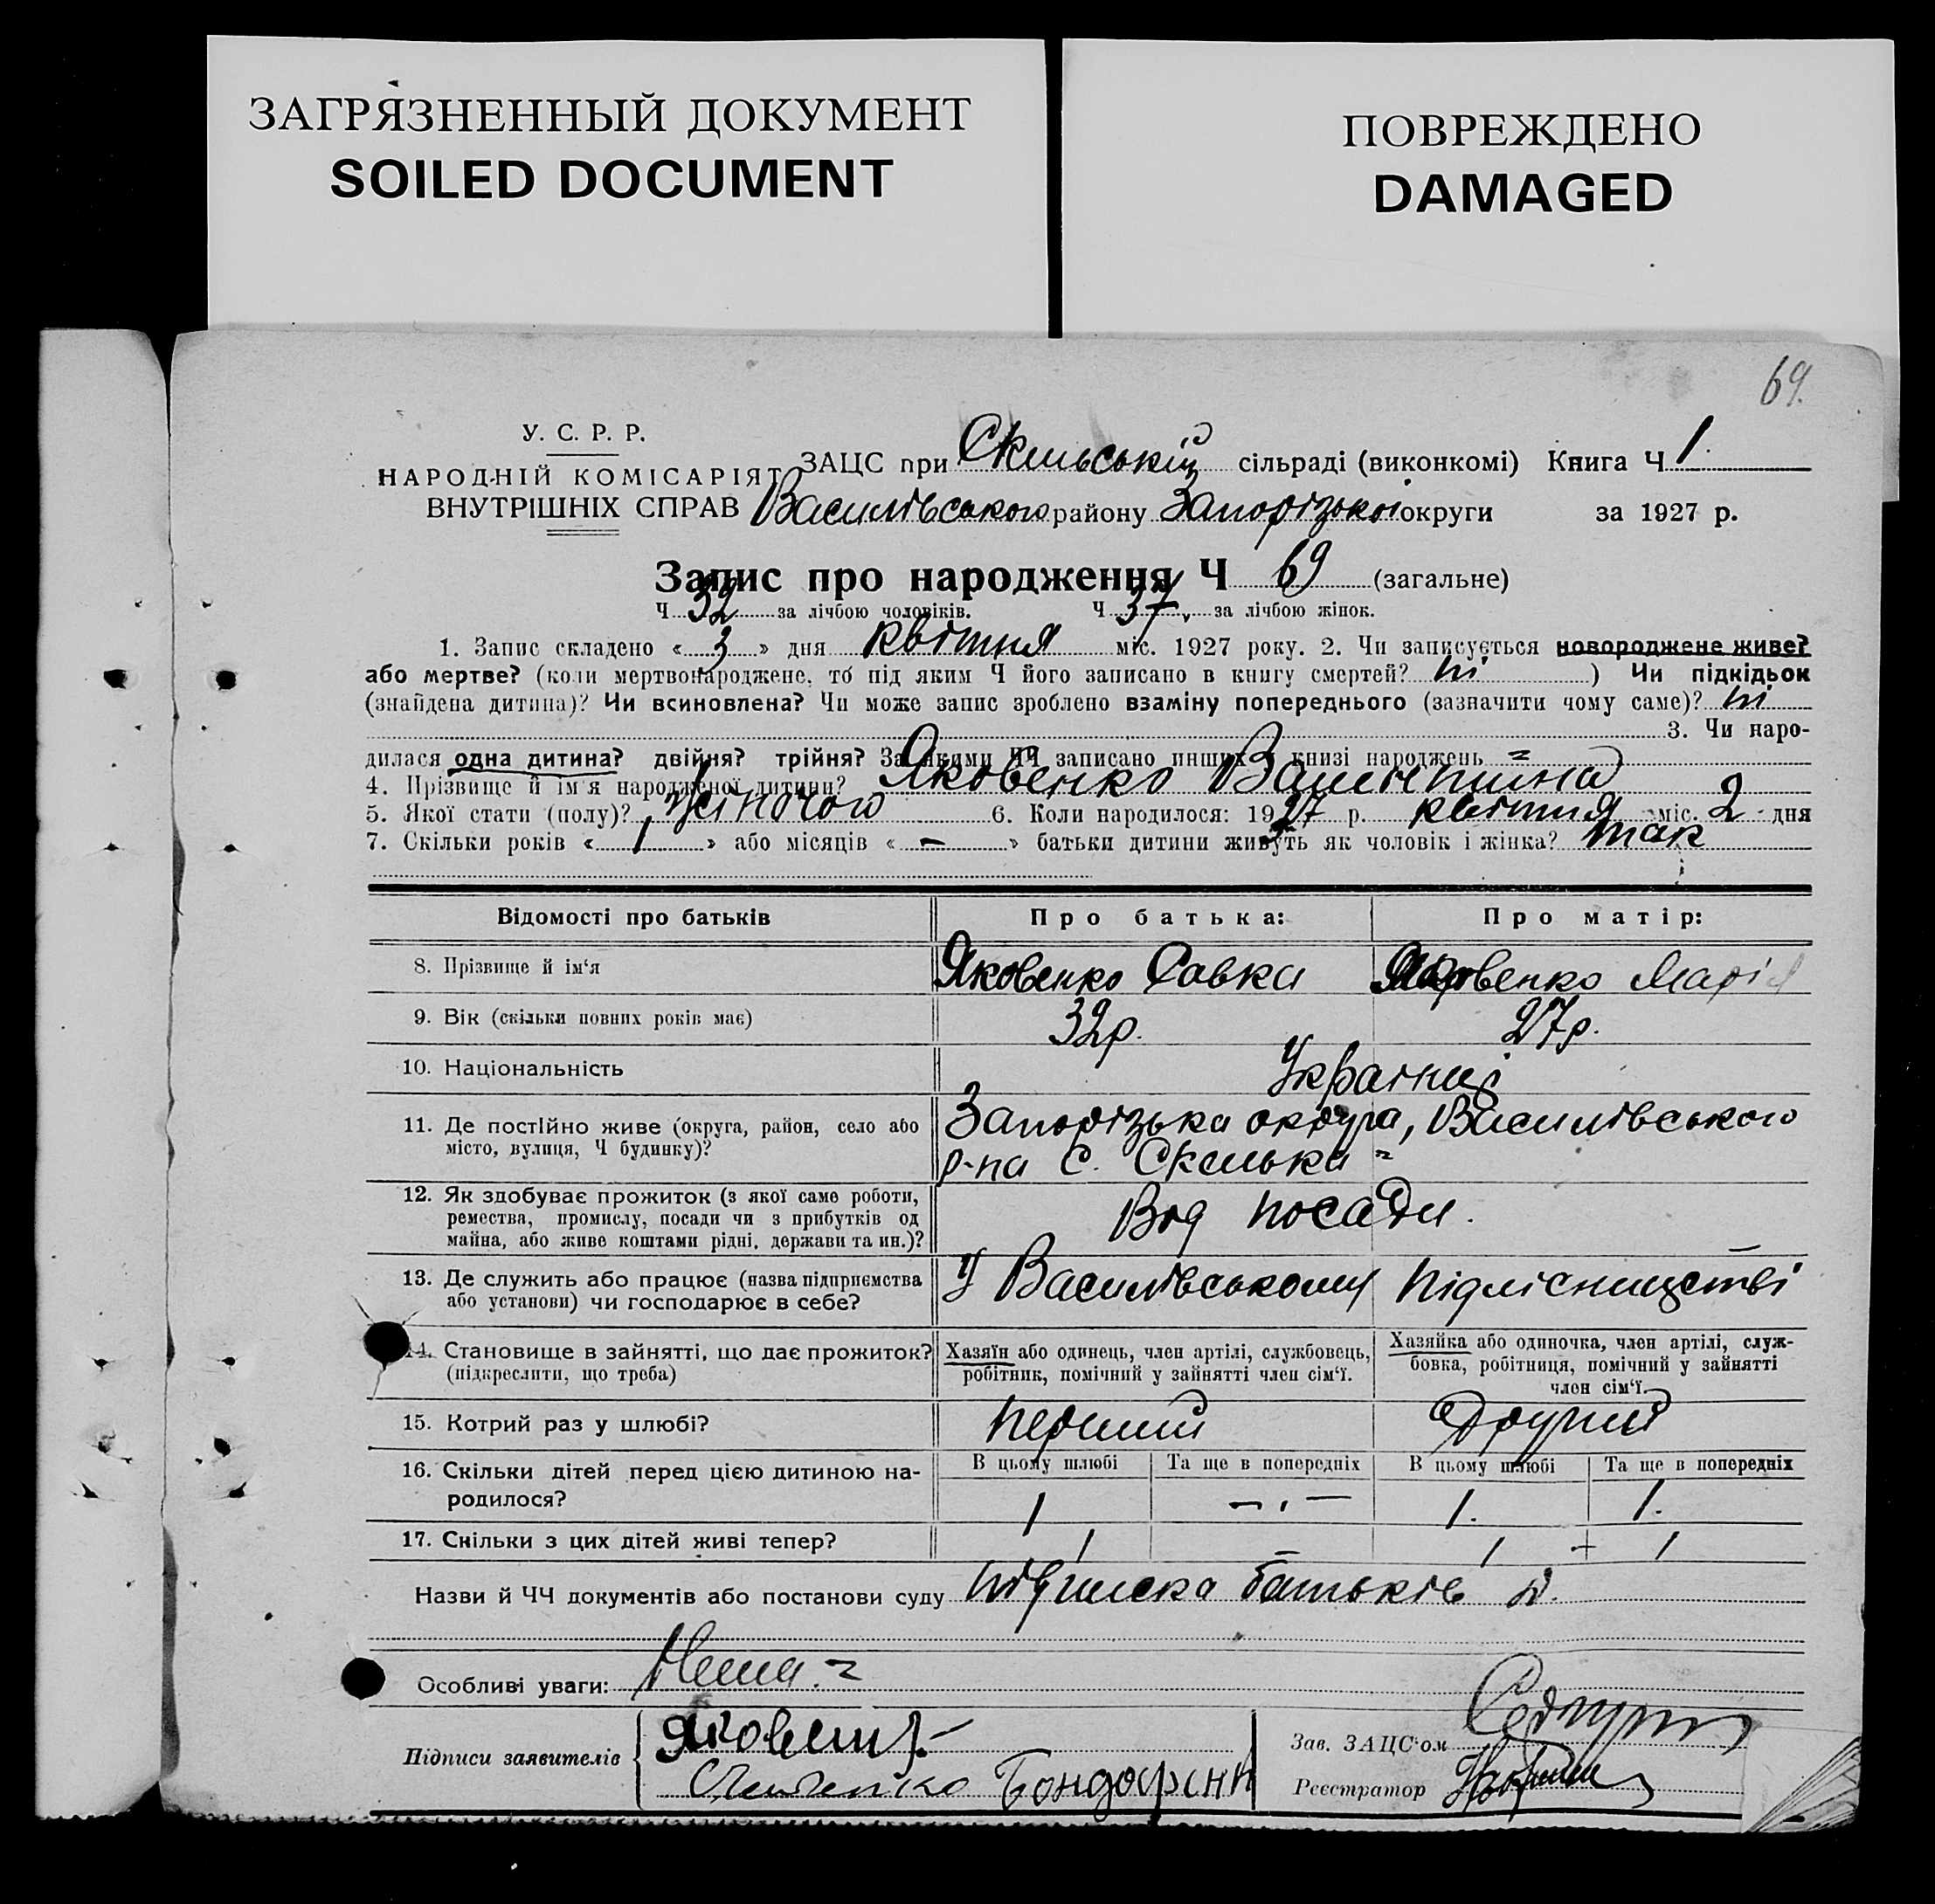 ЗАГРЯЗНЕННЫЙ ДОКУМЕНТ
SOILED DOCUMENT
ПОВРЕЖДЕНО
DAMAGED
69.
У. С. Р. Р.
НАРОДНІЙ КОМІСАРІЯТ
ВНУТРІШНІХ СПРАВ
ЗАЦС при Скельській сільраді (виконкомі) Книга Ч 1.
Василівського району Запорізької округи за 1927 р.
Запис про народження Ч 69 (загальне)
Ч 32 за лічбою чоловіків. Ч 37 за лічбою жінок.
1. Запис складено « 3 » дня квітня міс. 1927 року. 2. Чи записується новороджене живе?
або мертве? (коли мертвонароджене, то під яким Ч його записано в книгу смертей? ні ) Чи підкідьок
(знайдена дитина)? Чи всиновлена? Чи може запис зроблено взаміну попереднього (зазначити чому саме)? ні
3. Чи наро-
дилася одна дитина? двійня? трійня? За якими ЧЧ записано инших в книзі народжень =
4. Прізвище й ім'я народженої дитини? Яковенко Валентина
5. Якої стати (полу)? жіночої 6. Коли народилося: 1927 р. квітня міс. 2 дня
7. Скільки років « 1 » або місяців « — » батьки дитини живуть як чоловік і жінка? так
Відомості про батьків Про батька: Про матір:
8. Прізвище й ім'я Яковенко Савка Яковенко Марія
9. Вік (скільки повних років має) 32р. 27р.
10. Національність Українці
11. Де постійно живе (округа, район, село або
місто, вулиця, Ч будинку)?
Запорізька округа, Василівського
р-на с. Скелька =
12. Як здобуває прожиток (з якої саме роботи,
ремества, промислу, посади чи з прибутків од
майна, або живе коштами рідні, держави та ин.)?
Від посади.
13. Де служить або працює (назва підприємства
або установи) чи господарює в себе?
У Василівському підлісництві
14. Становище в зайнятті, що дає прожиток?
(підкреслити, що треба)
Хазяїн або одинець, член артілі, службовець,
робітник, помічний у зайнятті член сім'ї.
Хазяйка або одиночка, член артілі, служ-
бовка, робітниця, помічний у зайнятті
член сім'ї.
15. Котрий раз у шлюбі? перший другий
16. Скільки дітей перед цією дитиною на-
родилося?
В цьому шлюбі Та ще в попередніх В цьому шлюбі Та ще в попередніх
1 — . — 1. 1.
17. Скільки з цих дітей живі тепер? 1 1 1
Назви й ЧЧ документів або постанови суду підписка батьків
Особливі уваги: Нема. =
Підписи заявителів
Зав. ЗАЦС'ом
Реєстратор